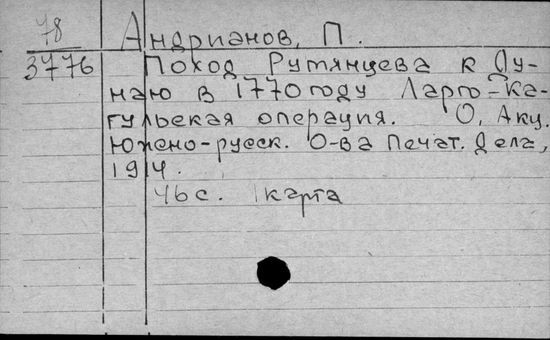 78
3776
Андрианов, П.
Поход Румянцева к Ду-
наю в 1770 году Ларго-Ка-
гульская операция. О, Акц.
Южно-русск. О-ва Печат. Дела,
1914.
46 с. 1 карта